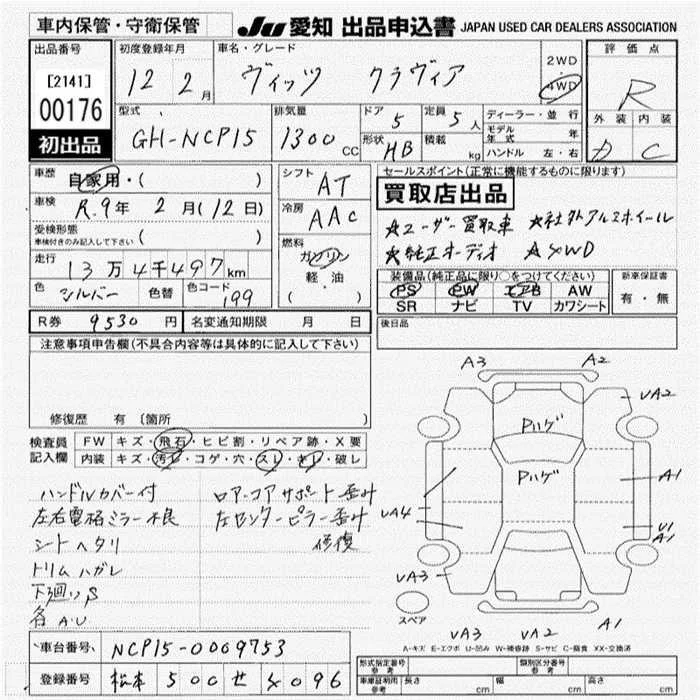 車内保管・守衛保管
JU 愛知 出品申込書 JAPAN USED CAR DEALERS ASSOCIATION
出品番号
[2141]
00176
初出品
初度登録年月
12 2月
車名・グレード
ヴィッツ クラヴィア
2WD
4WD
評価点
R
外装 内装
C
型式
GH-NCP15
排気量
1300 CC
ドア
5
定員
5人
形状
HB
積載
kg
ディーラー・並行
モデル年式 年
ハンドル 左・右
車歴
自家用・( )
車検
R.9年 2月(12日)
受検形態
車検付きのみ記入して下さい ( )
走行
13万4千497km
色
シルバー
色替
色コード
199
シフト
AT
冷房
AAC
燃料
ガソリン
軽・油
( )
セールスポイント(正常に機能するものに限ります)
買取店出品
☆ユーザー買取車 ☆社外アルミホイール
☆純正オーディオ ☆4WD
装備品(純正品に限り○をつけてください)
PS PW エアB AW
SR ナビ TV カワシート
新車保証書
有・無
R券 9530円
名変通知期限 月 日
後日品
注意事項申告欄(不具合内容等は具体的に記入して下さい)
修復歴 有 〔箇所 〕
検査員記入欄
FW キズ・飛石・ヒビ割・リペア跡・X要
内装 キズ・汚レ・コゲ・穴・スレ・キレ・破レ
ハンドルカバー付
左右電格ミラー不良
シートヘタリ
トリムハガレ
下廻りS
各AU
ロアコアサポート歪み
左センターピラー歪み
修復
A3
A2
VA2
Pハゲ
Pハゲ
A1
VA4
U1
A1
VA3
スペア
VA3
VA2
A1
A-キズ E-エクボ U-凹み W-補修跡 S-サビ C-腐食 XX-交換済
車台番号
NCP15-0009753
登録番号
松本 500 せ 4096
形式指定番号
参考
類別区分番号
参考
車庫証明用
参考
長さ cm
幅 cm
高さ cm